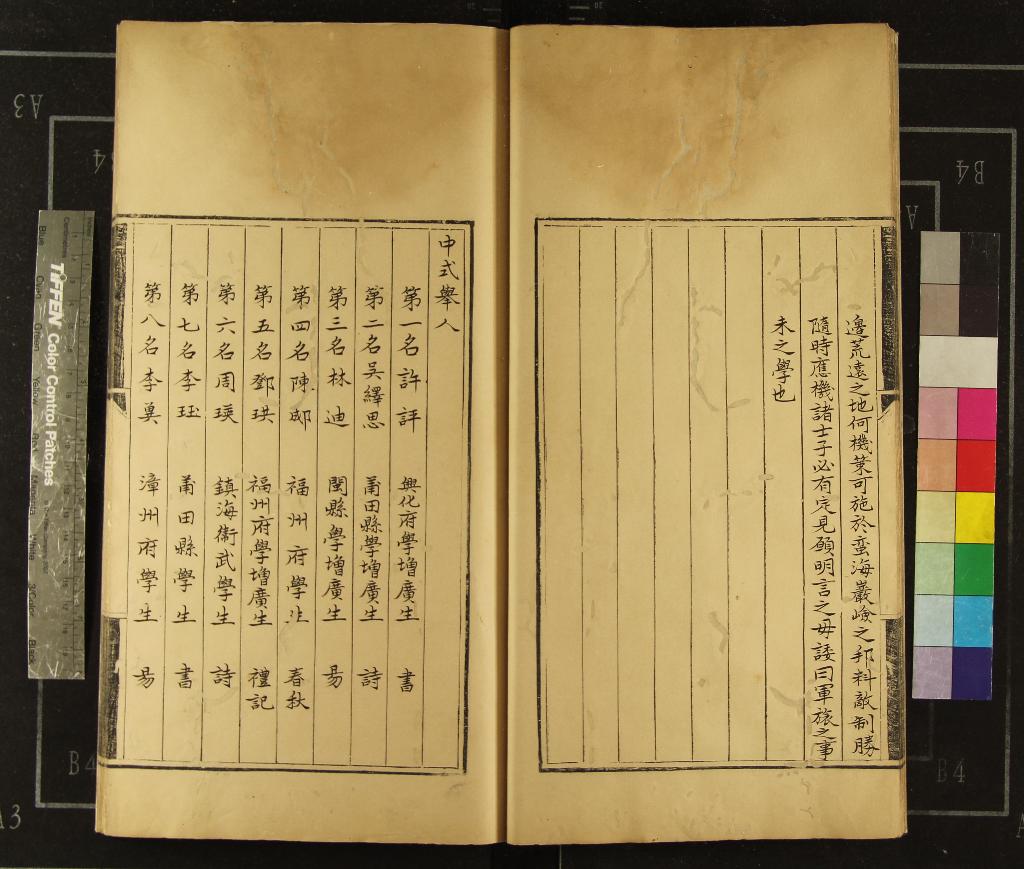 邊荒遠之地何機策可施於蛮海巖嶮之邦料敵制勝
隨時應機諸士子必有定見願明言之毋諉曰軍旅之事
未之學也
中式舉人
第一名許評 興化府學增廣生 書
第二名吳繹思 莆田縣學增廣生 詩
第三名林迪 閩縣學增廣生 易
第四名陳 福州府學生 春秋
第五名鄧珙 福州府學增廣生 禮記
第六名周瑛 鎮海衛武學生 詩
第七名李珏 莆田縣學生 書
第八名李 漳州府學生 易
TIFFEN Color Control Patches
A3
B4
B4
A3
B4